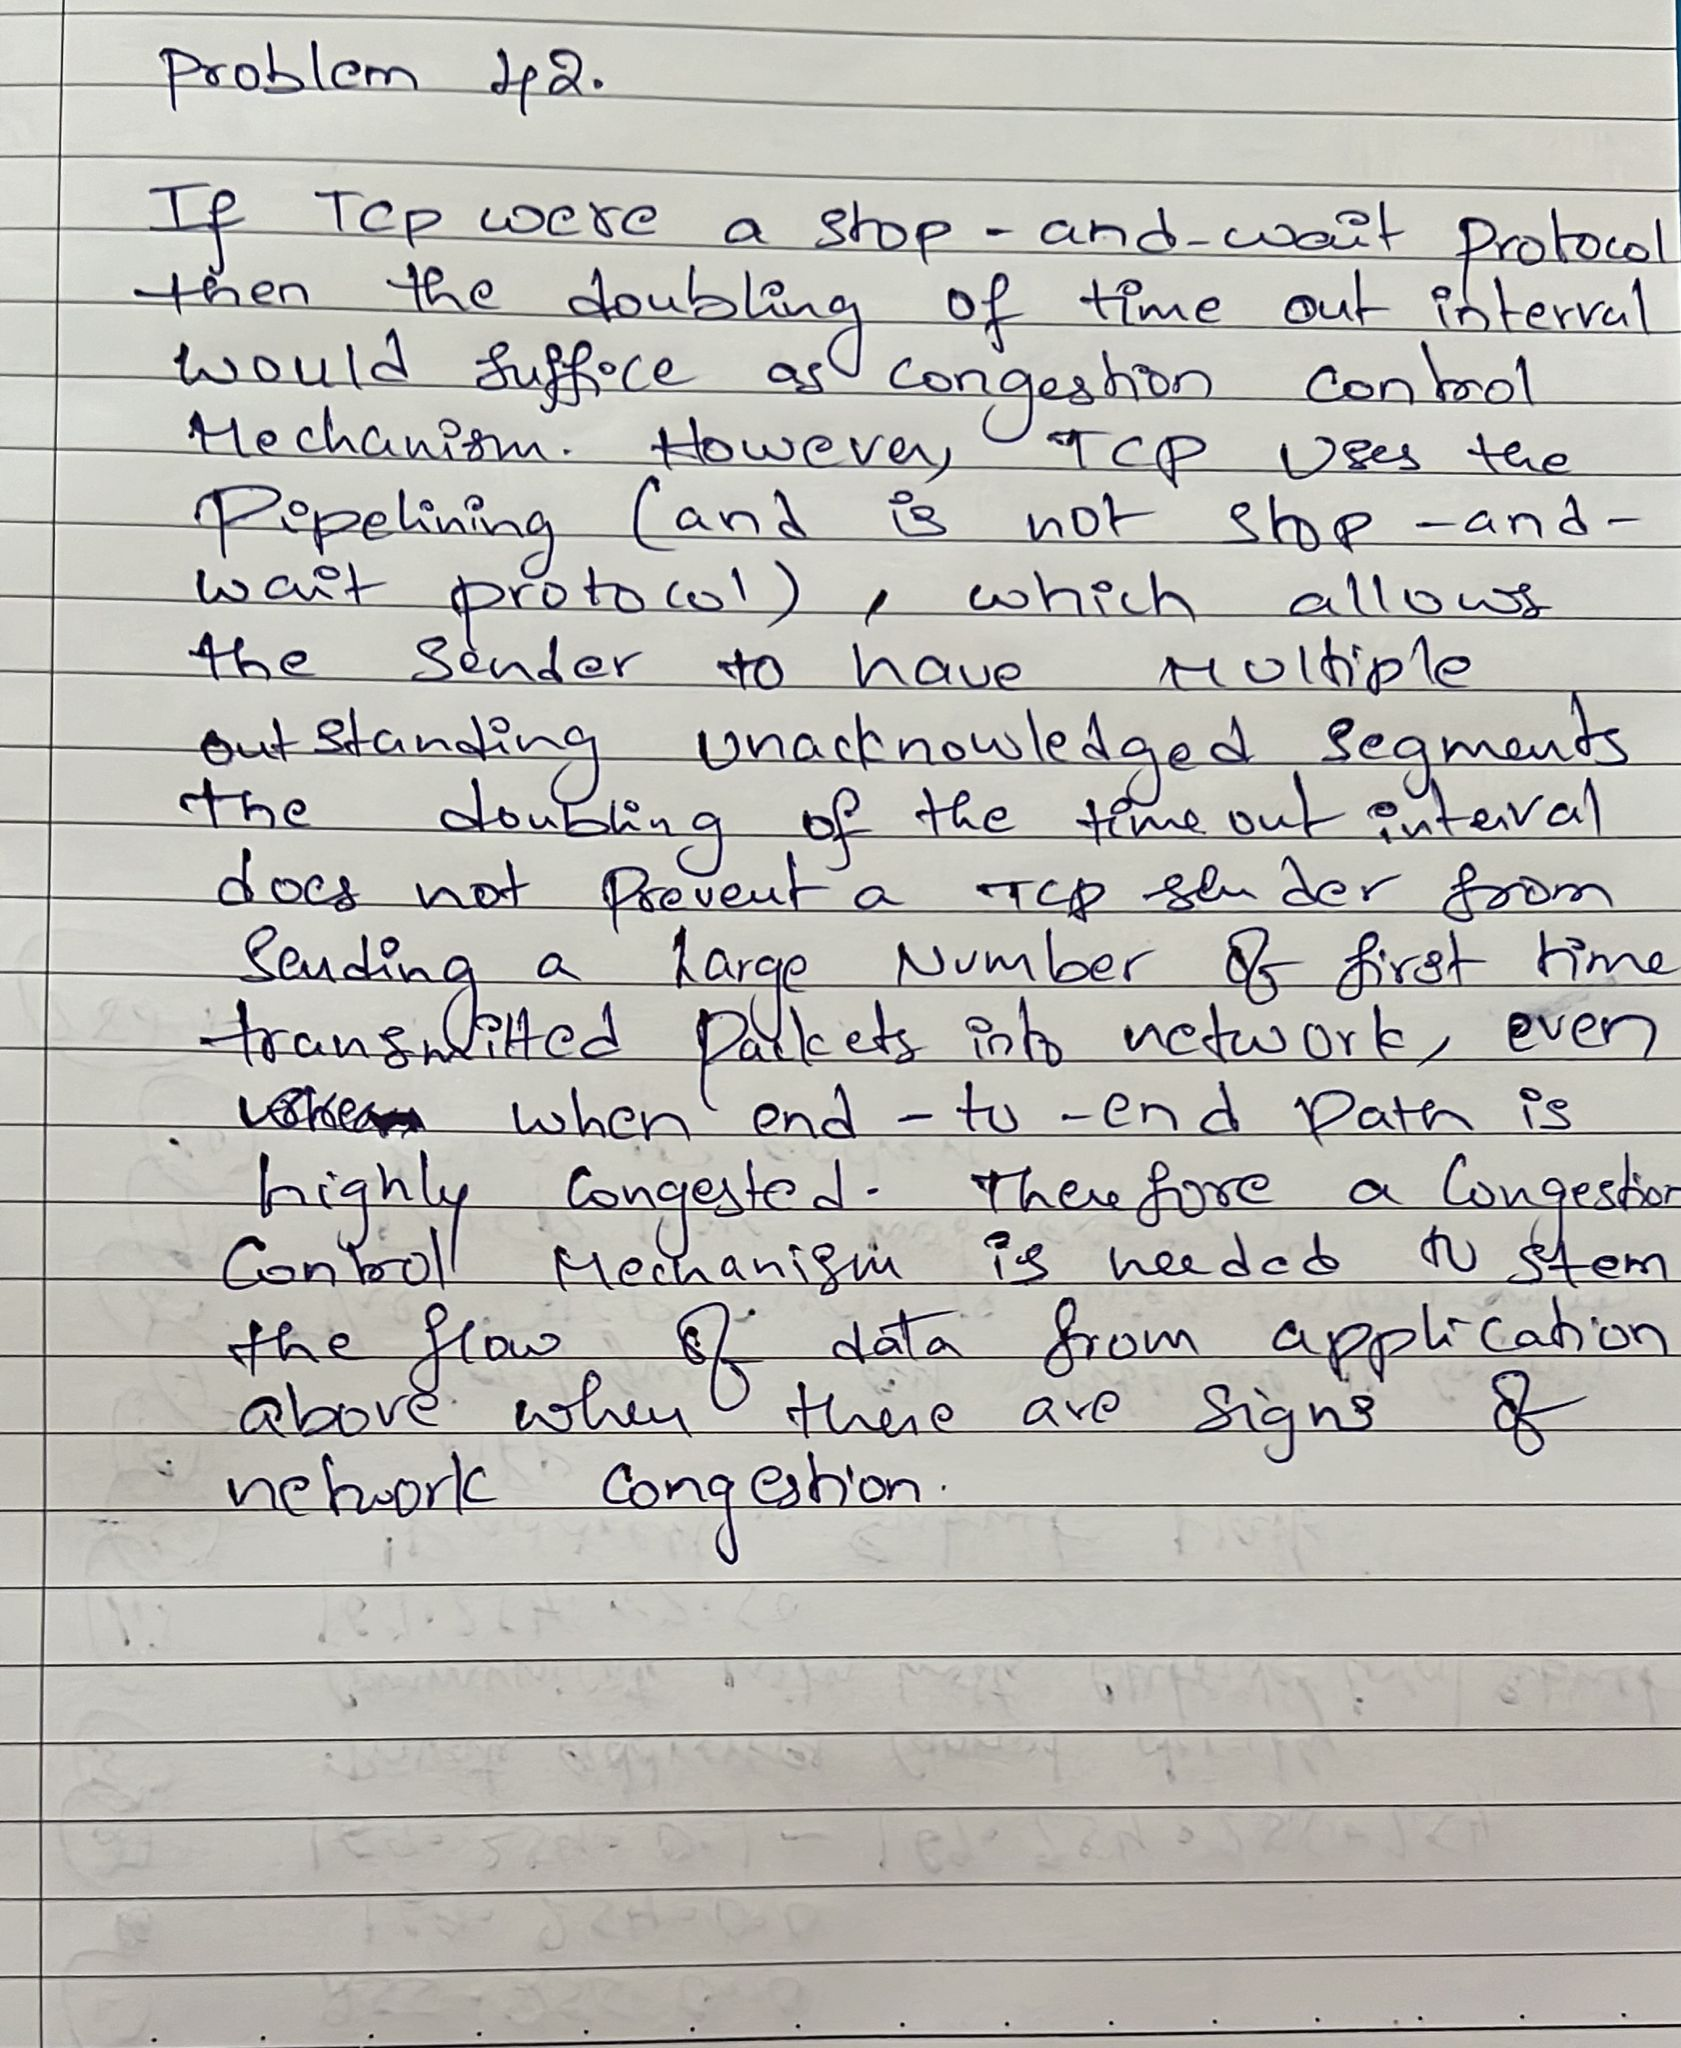 Problem 42.
If TCP were a stop-and-wait protocol
then the doubling of time out interval
would suffice as congestion control
Mechanism. However, TCP Uses the
Pipelining (and is not stop-and-
wait protocol), which allows
the sender to have Multiple
outstanding unacknowledged segments
the doubling of the time out interval
does not Prevent a TCP sender from
Sending a Large Number of first time
transmitted Packets into network, even
when end-to-end Path is
highly Congested. Therefore a Congestion
Control Mechanism is needed to stem
the flow of data from application
above when there are signs of
network Congestion.